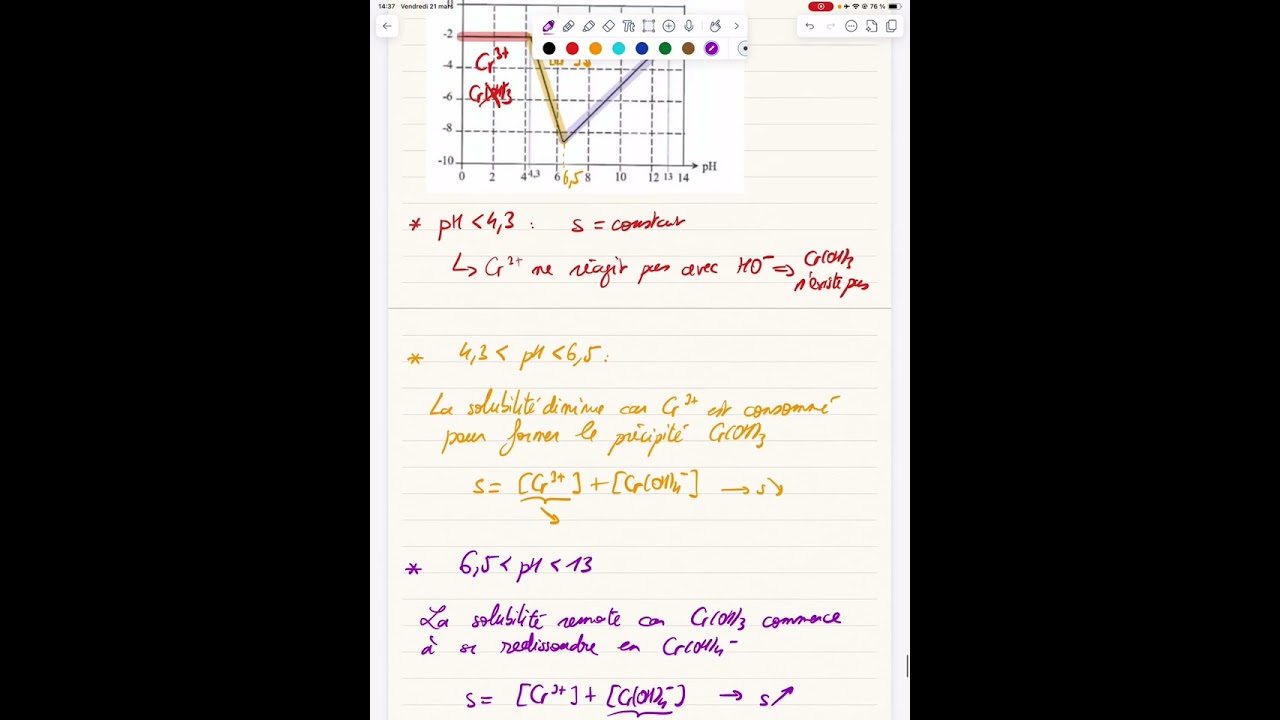 14:37 Vendredi 21 mars
76 %
-2
-4
-6
-8
-10
Cr³⁺
Cr(OH)3
0 2 4 4,3 6 8 10 12 13 14 pH
6,5
* pH < 4,3 : s = constant
↳ Cr³⁺ ne réagit pas avec HO⁻ ⇒ Cr(OH)3
n'existe pas
* 4,3 < pH < 6,5 :
La solubilité diminue car Cr³⁺ est consommé
pour former le précipité Cr(OH)3
s = [Cr³⁺] + [Cr(OH)4⁻] → s ↘
* 6,5 < pH < 13
La solubilité remonte car Cr(OH)3 commence
à se redissoudre en Cr(OH)4⁻
s = [Cr³⁺] + [Cr(OH)4⁻] → s ↗